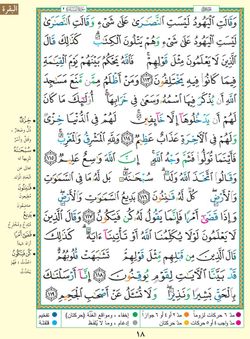 البقرة
وَقَالَتِ ٱلۡيَهُودُ لَيۡسَتِ ٱلنَّصَٰرَىٰ عَلَىٰ شَيۡءٖ وَقَالَتِ ٱلنَّصَٰرَىٰ
لَيۡسَتِ ٱلۡيَهُودُ عَلَىٰ شَيۡءٖ وَهُمۡ يَتۡلُونَ ٱلۡكِتَٰبَۗ كَذَٰلِكَ قَالَ
ٱلَّذِينَ لَا يَعۡلَمُونَ مِثۡلَ قَوۡلِهِمۡۚ فَٱللَّهُ يَحۡكُمُ بَيۡنَهُمۡ يَوۡمَ ٱلۡقِيَٰمَةِ
فِيمَا كَانُواْ فِيهِ يَخۡتَلِفُونَ ١١٣ وَمَنۡ أَظۡلَمُ مِمَّن مَّنَعَ مَسَٰجِدَ
ٱللَّهِ أَن يُذۡكَرَ فِيهَا ٱسۡمُهُۥ وَسَعَىٰ فِي خَرَابِهَآۚ أُوْلَٰٓئِكَ مَا كَانَ
لَهُمۡ أَن يَدۡخُلُوهَآ إِلَّا خَآئِفِينَۚ لَهُمۡ فِي ٱلدُّنۡيَا خِزۡيٞ
وَلَهُمۡ فِي ٱلۡأٓخِرَةِ عَذَابٌ عَظِيمٞ ١١٤ وَلِلَّهِ ٱلۡمَشۡرِقُ وَٱلۡمَغۡرِبُۚ
فَأَيۡنَمَا تُوَلُّواْ فَثَمَّ وَجۡهُ ٱللَّهِۚ إِنَّ ٱللَّهَ وَٰسِعٌ عَلِيمٞ ١١٥
وَقَالُواْ ٱتَّخَذَ ٱللَّهُ وَلَدٗاۗ سُبۡحَٰنَهُۥۖ بَل لَّهُۥ مَا فِي ٱلسَّمَٰوَٰتِ
وَٱلۡأَرۡضِۖ كُلّٞ لَّهُۥ قَٰنِتُونَ ١١٦ بَدِيعُ ٱلسَّمَٰوَٰتِ وَٱلۡأَرۡضِۖ
وَإِذَا قَضَىٰٓ أَمۡرٗا فَإِنَّمَا يَقُولُ لَهُۥ كُن فَيَكُونُ ١١٧ وَقَالَ ٱلَّذِينَ
لَا يَعۡلَمُونَ لَوۡلَا يُكَلِّمُنَا ٱللَّهُ أَوۡ تَأۡتِينَآ ءَايَةٞۗ كَذَٰلِكَ قَالَ
ٱلَّذِينَ مِن قَبۡلِهِم مِّثۡلَ قَوۡلِهِمۡۘ تَشَٰبَهَتۡ قُلُوبُهُمۡۗ
قَدۡ بَيَّنَّا ٱلۡأٓيَٰتِ لِقَوۡمٖ يُوقِنُونَ ١١٨ إِنَّآ أَرۡسَلۡنَٰكَ
بِٱلۡحَقِّ بَشِيرٗا وَنَذِيرٗاۖ وَلَا تُسۡـَٔلُ عَنۡ أَصۡحَٰبِ ٱلۡجَحِيمِ ١١٩
١٨